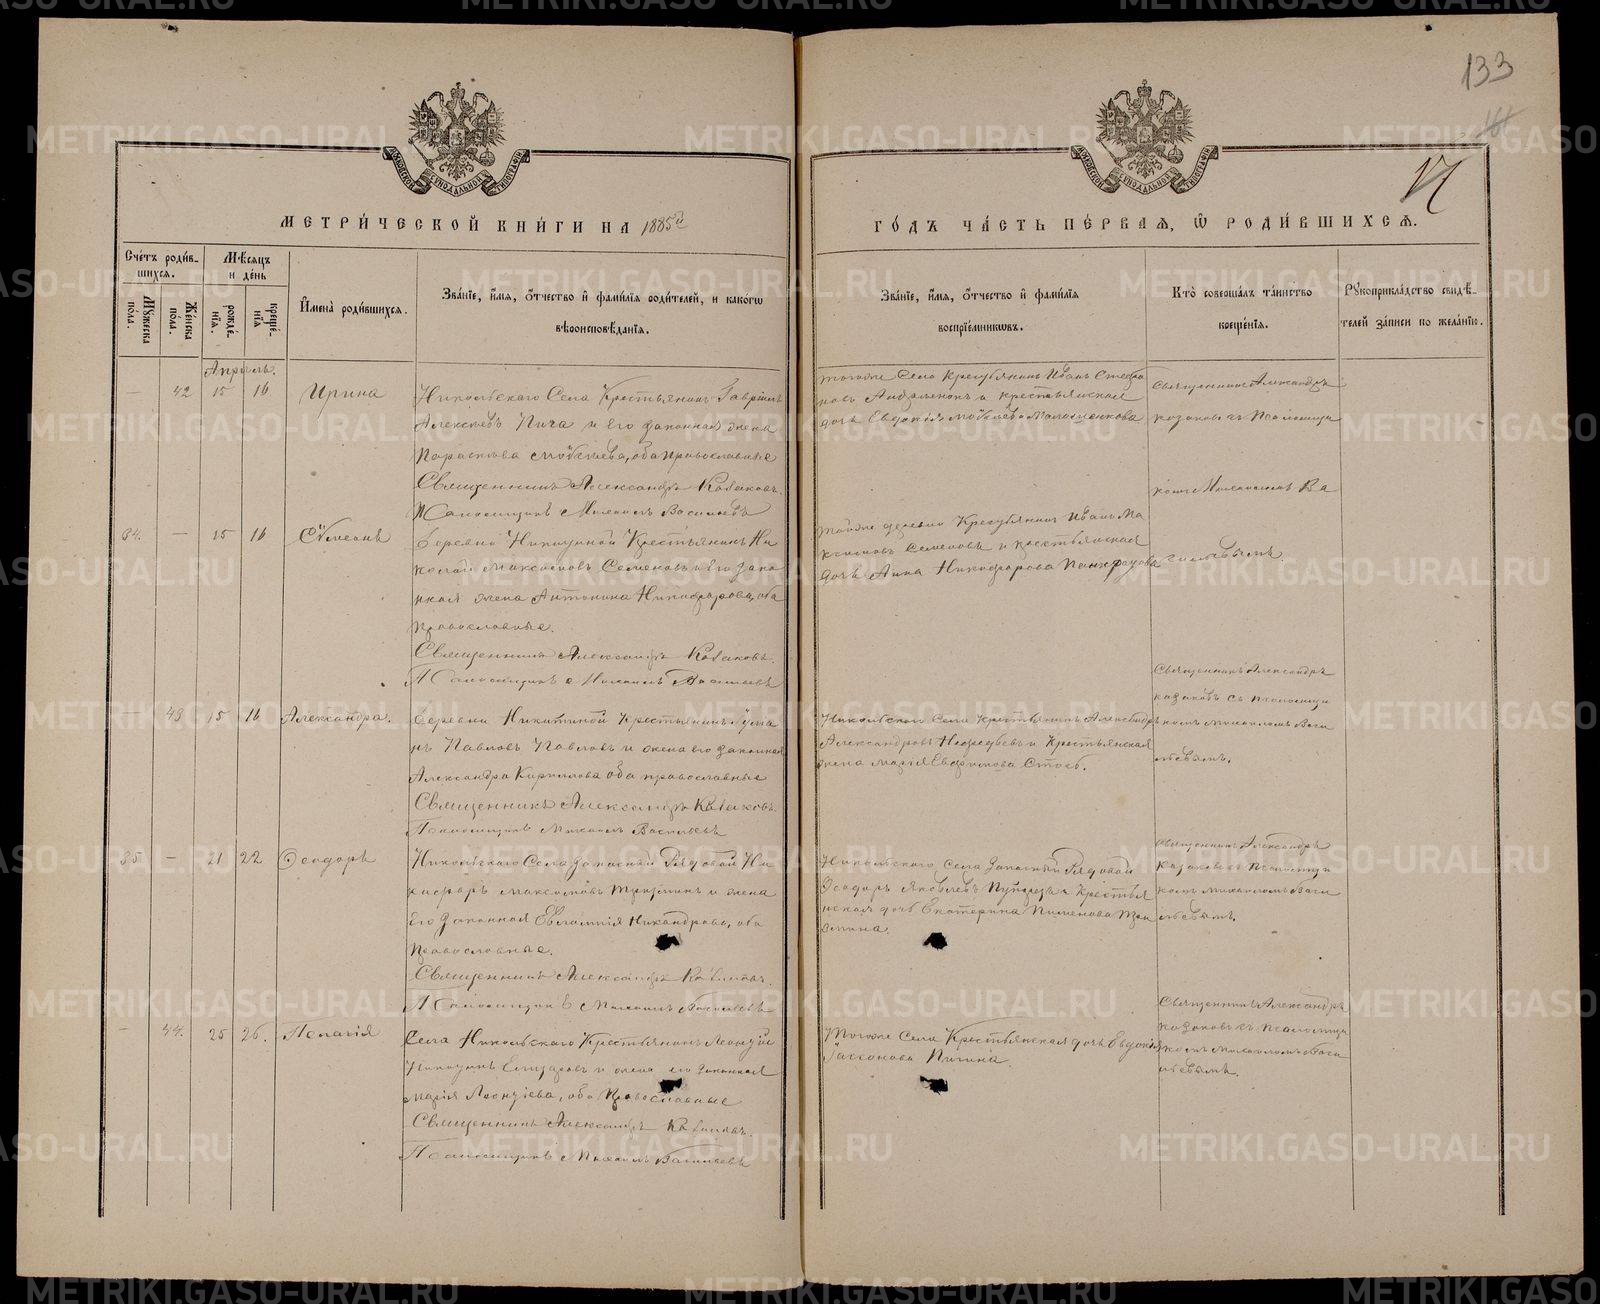 133
17
МЕТРИ́ЧЕСКОЙ КНИ́ГИ НА 1885й
ГО́ДЪ ЧА́СТЬ ПЕ́РВАЯ, Ѽ РОДИ́ВШИХСЯ.
Сче́тъ роди́в-
шихся.
Мѣсяцъ
и де́нь
Мꙋ́жеска по́ла.
Же́нска по́ла.
рожде́-
нїя.
креще́-
нїя
И҆мена̀ роди́вшихся.
Зва́нїе, и҆́мя, ѻ҆́тчество и҆ фамѝлїѧ роди́телей, и како́гѡ
вѣроисповѣ́данїя.
Зва́нїе, и҆́мя, ѻ҆́тчество и҆ фами́лїѧ
воспрїе́мникѡвъ.
Кто̀ соверша́лъ та́инство
креще́нїя.
Рꙋкоприкла́дство свидѣ́-
телей за́писи по жела́нїю.
Апрѣль.
— 42 15 16 Ирина
Никольскаго Села Крестьянинъ Гавріилъ
Алексѣевъ Пича и его законная жена
Параскева Моѵсѣева, оба православные
Священникъ Александръ Козаковъ.
Псаломщикъ Михаилъ Васильевъ
тогоже Села Крестьянинъ Иванъ
и крестьянская
дочь Евдокія Моѵсѣева
Священникъ Александръ
козаковъ съ Псаломщи
комъ Михаиломъ Ва
сильевымъ.
34. — 15 16 Сѵмеонъ
деревни Никитиной Крестьянинъ Ни
колай Максимовъ Семеновъ и его зако
нная жена Антонина Никифорова, оба
православные.
Священникъ Александръ Козаковъ.
Псаломщикъ Михаилъ Васильевъ
тойже деревни Крестьянинъ Иванъ Ма
ксимовъ Семеновъ и крестьянская
дочь Анна Никифорова
— 43 15 16 Александра.
деревни Никитиной Крестьянинъ
Павловъ Павловъ и жена его законная
Александра Кирилова оба православные
Священникъ Александръ Козаковъ.
Псаломщикъ Михаилъ Васильевъ
Никольскаго Села Крестьянинъ Александръ
Александровъ и Крестьянская
жена Марія Евфимова
Священникъ Александръ
козаковъ съ псаломщи
комъ Михаиломъ Васи
льевымъ.
35 — 21 22 Ѳеодоръ
Никольскаго Села запасный Рядовой Ни
кифоръ Максимовъ и жена
его законная Евлампія Никандрова, оба
Православные.
Священникъ Александръ Козаковъ.
Псаломщикъ Михаилъ Васильевъ
Никольскаго Села запасный Рядовой
Ѳеодоръ Яковлевъ и Крестья
нская дочь Екатерина Пименова
Священникъ Александръ
Казаковъ съ Псаломщи
комъ Михаиломъ Васи
льевымъ.
— 44. 25 26. Пелагія
Села Никольскаго Крестьянинъ Леонтій
Никитинъ и жена его законная
Марія Леонтіева, оба Православные
Священникъ Александръ Козаковъ.
Псаломщикъ Михаилъ Васильевъ
Тогоже Села Крестьянская дочь Евдокія
Священникъ Александръ
Козаковъ съ псаломщи
комъ Михаиломъ Васи
льевымъ.